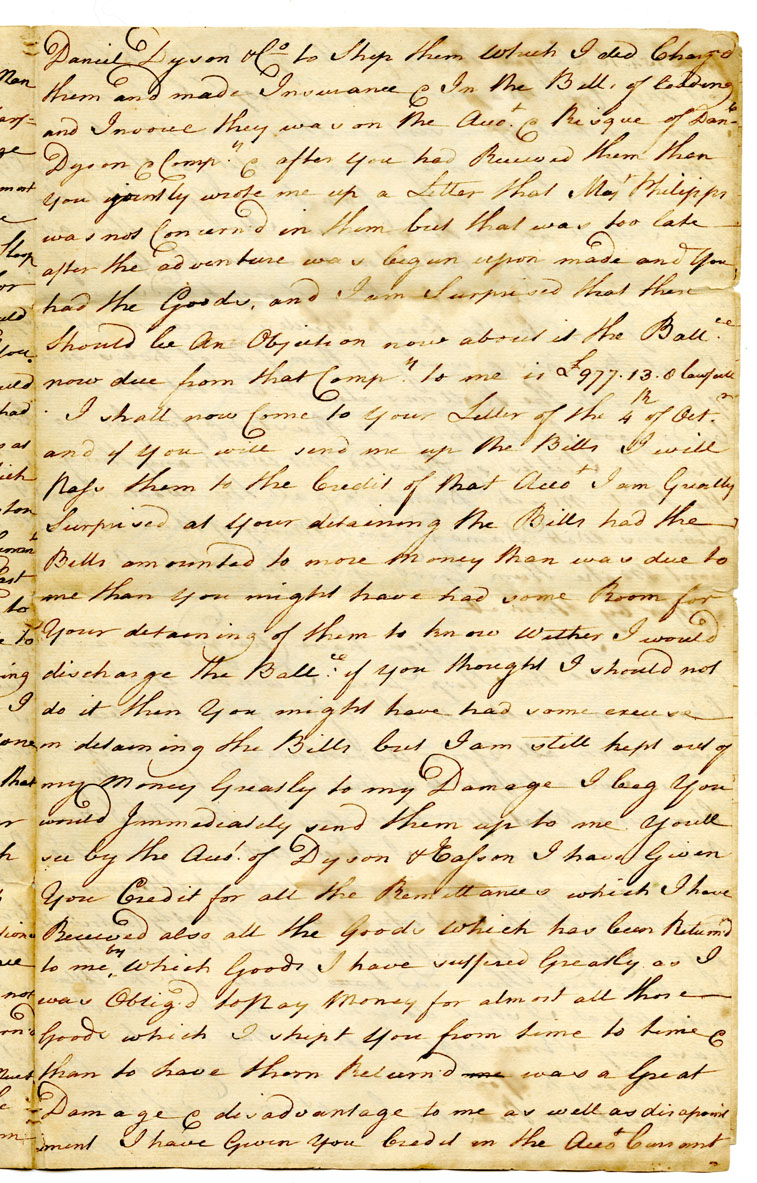 Daniel Dyson & Co to Ship them which I did Charg'd
them and made Insurance & In the Bills of Loading
and Invoice they was on the Acco.t & Risque of Dan.ll
Dyson & Comp.y & after you had Received them then
you joyntly wrote me up a Letter that Maj.r Philipps
was not Concern'd in them but that was too late
after the adventure was begun upon made and you
had the Goods, and I am Surprised that there
Should be An Objection now about it the Ball.ce
now due from that Comp.y to me is £977.13.0 lawfull
I shall now Come to your Letter of the 4th of Oct.r
and if you will send me up the Bills I will
Pass them to the Credit of that Acco.t I am Greatly
Surprised at your detaining the Bills had the
Bills amounted to more money than was due to
me than you might have had some Room for
Your detaining of them to know wether I would
discharge the Ball.ce if you thought I should not
do it then you might have had some excuse
in detaining the Bills but I am still kept out of
my Money Greatly to my Damage I beg you
would Immediately send them up to me you'll
see by the Acco.t of Dyson & Easson I have Given
You Credit for all the Remittances which I have
Received also all the Goods which has been Return'd
to me, by which Goods I have suffered Greatly as I
was Oblig'd to Pay Money for almost all those
Goods which I shipt you from time to time &
than to have them Return'd me was a Great
Damage & disadvantage to me as well as disapoint
ment I have Given you Credit in the Acco.t Currant